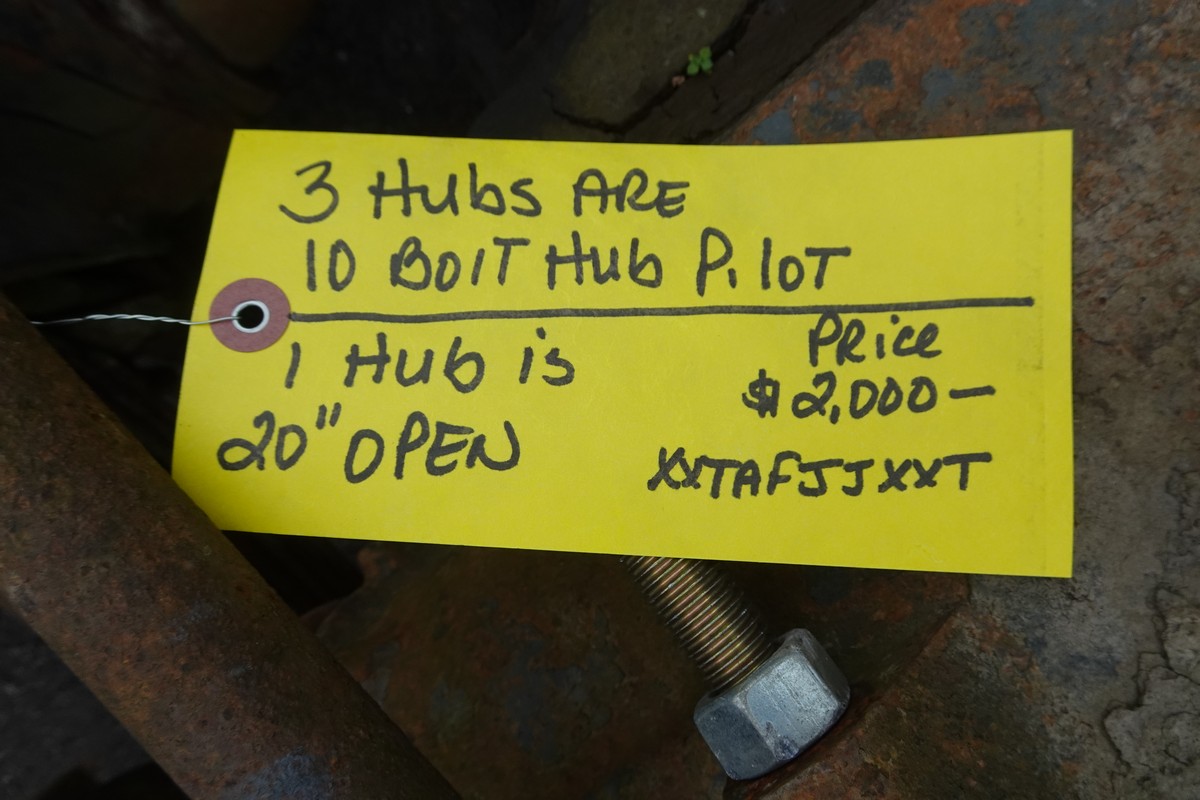 3 Hubs ARE
10 BOlT Hub PilOT
1 Hub is
20" OPEN
PRice
$2,000—
XXTAFJJXXT